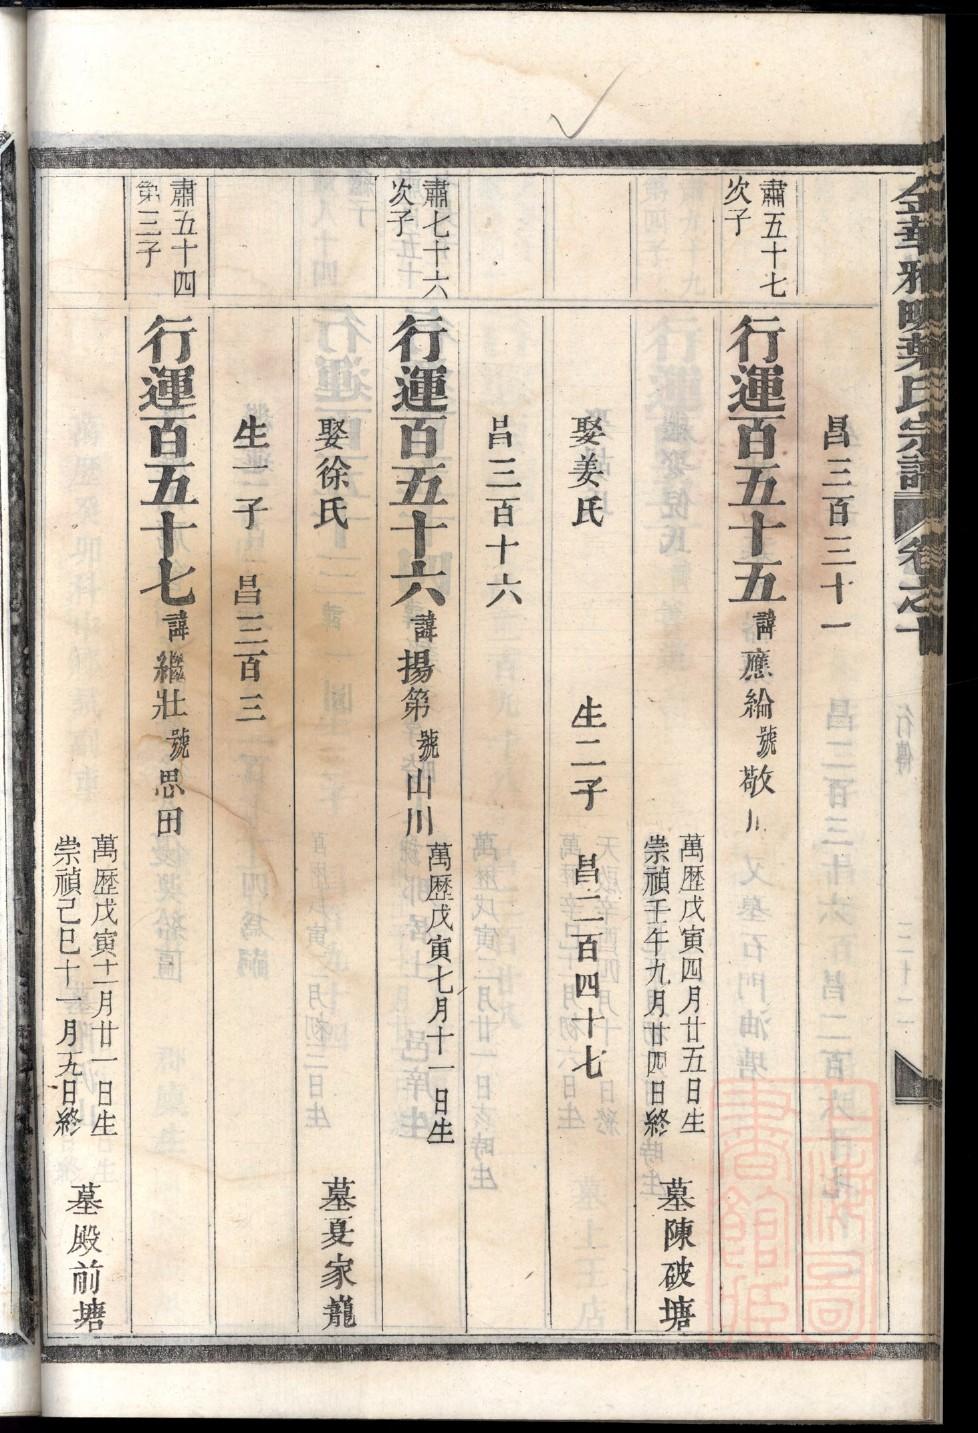 金華雅畈葉氏宗譜 卷之十 行傳 三十二
昌三百三十一
肅五十七
次子
行運百五十五 諱應綸 號敬川
萬歷戊寅四月廿五日生
崇禎壬午九月廿四日終
墓陳破塘
娶姜氏 生二子 昌二百四十七
昌三百十六
肅七十六
次子
行運百五十六 諱揚第 號山川
萬歷戊寅七月十一日生
娶徐氏
墓夏家龍
生一子 昌三百三
肅五十四
第三子
行運百五十七 諱繼壯 號思田
萬歷戊寅十一月廿一日生
崇禎己巳十一月五日終
墓殿前塘